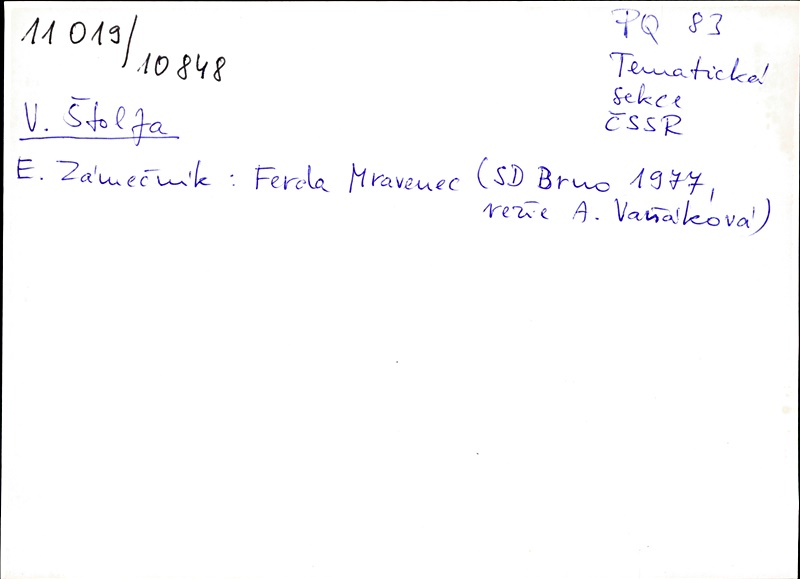 11 019/
10848
PQ 83
Tematická
sekce
ČSSR
V. Štolfa
E. Zámečník : Ferda Mravenec (SD Brno 1977,
režie A. Vaňáková)